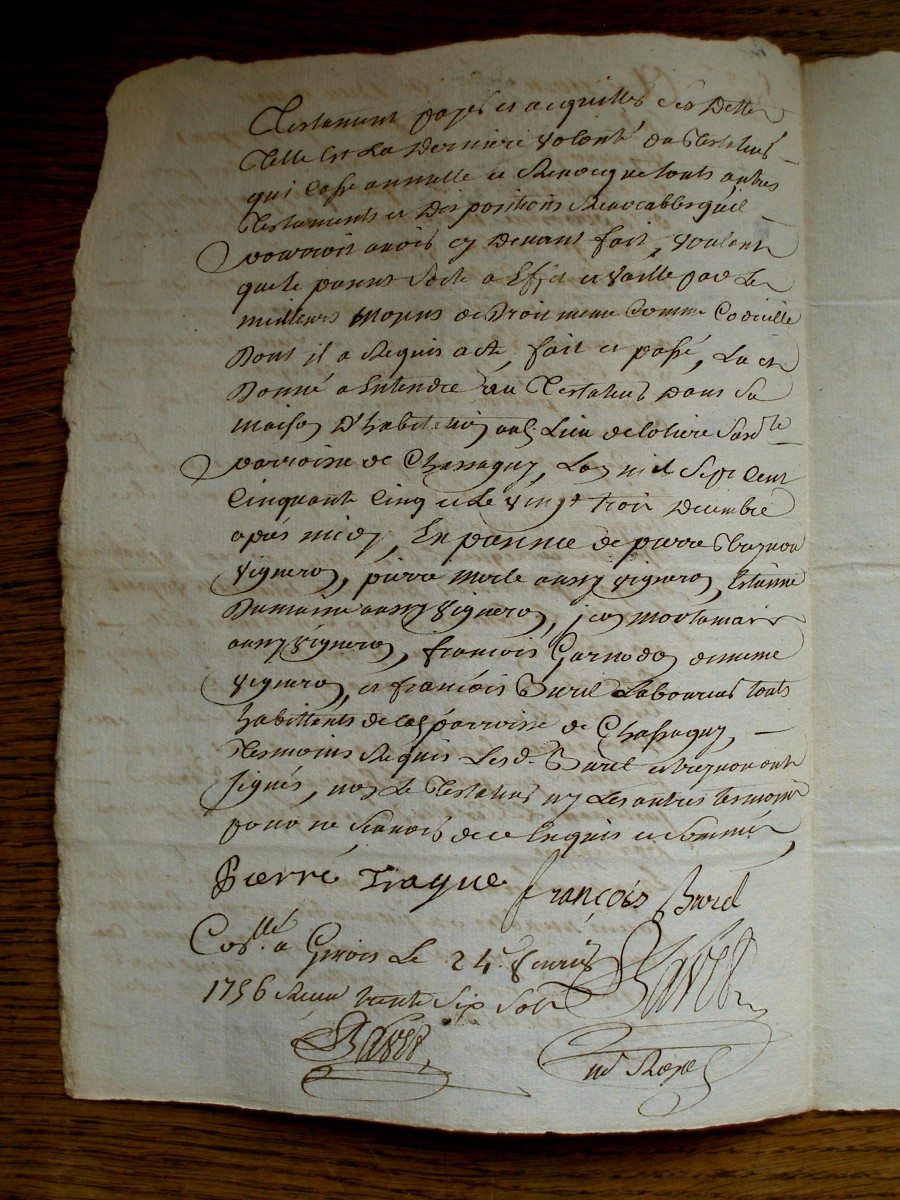 Testament payés et acquittés ses Dettes
Telle est La Derniere volonté du Testateur
qui Casse annulle et Revocque touts autres
Testaments et Dispositions Revocables quil
pourroit avoir cy Devant fait, voulent
que le present sorte a Effet et vaille par Les
meilleurs moyens de Droit meme Comme Codicille
Dont il a Requis acte, fait et passé, Lu et
Donné a Entendre au Testateur Dans sa
maison D'habitation au Lieu de
parroisse de Chassagny, Lan mil Sept Cent
Cinquante Cinq et Le vingt trois Decembre
après midy, En presence de pierre
vigneron, pierre merle aussy vigneron, Estienne
aussy vigneron, jean
aussy vigneron, françois de meme
vigneron, et françois Burel Laboureur touts
habittents de lad parroisse de Chassagny
Tesmoins Requis Lesd. Burel et ont
signés, non Le Testateur ny Les autres tesmoins
pour ne sçavoir de ce Enquis et sommés,
Pierre Trague françois Burel
Collé a Givors Le 24e
1756 Receu trente Six Sols
nd Royal